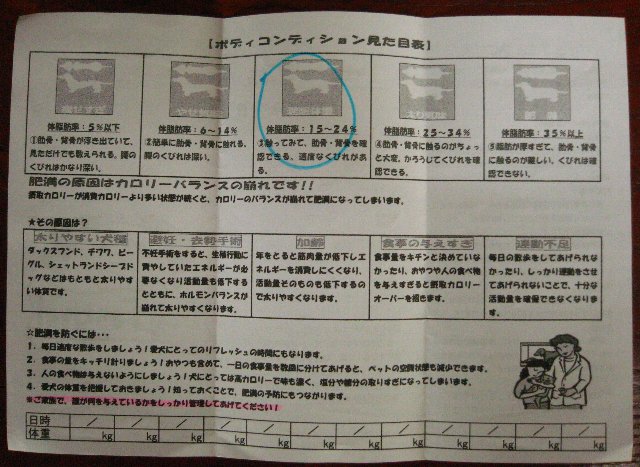 【ボディコンディション見た目表】
体脂肪率：5%以下
①肋骨・背骨が浮き出ていて、
見ただけでも数えられる。腰の
くびれはかなり深い。
体脂肪率：6～14%
②簡単に肋骨・背骨に触れる。
腰のくびれは深い。
体脂肪率：15～24%
③触ってみて、肋骨・背骨を確
認できる。適度なくびれがあ
る。
体脂肪率：25～34%
④肋骨・背骨に触るのがちょっ
と大変。かろうじてくびれを確
認できる。
体脂肪率：35%以上
⑤脂肪が厚すぎて、肋骨・背骨
に触るのが難しい。くびれは確
認できない。
肥満の原因はカロリーバランスの崩れです!!
摂取カロリーが消費カロリーより多い状態が続くと、カロリーのバランスが崩れて肥満になってしまいます。
★その原因は？
太りやすい犬種
ダックスフンド、チワワ、ビー
グル、シェットランドシープド
ッグなどはもともと太りやす
い体質です。
避妊・去勢手術
不妊手術をすると、生殖行動に
費やしていたエネルギーが必
要なくなり活動量も低下する
とともに、ホルモンバランスが
崩れて太りやすくなります。
加齢
年をとると筋肉量が低下しエ
ネルギーを消費しにくくなり、
活動量そのものも低下するの
で太りやすくなります。
食事の与えすぎ
食事量をキチンと決めていな
かったり、おやつや人の食べ物
を与えすぎると摂取カロリー
オーバーを招きます。
運動不足
毎日の散歩をしてあげられな
かったり、しっかり運動をさせ
てあげられないことで、十分な
活動量を確保できなくなりま
す。
★肥満を防ぐには・・・
1．毎日適度な散歩をしましょう！愛犬にとってのリフレッシュの時間にもなります。
2．食事の量をキッチリ計りましょう！おやつも含めて、一日の食事量を数回に分けてあげると、ペットの空腹状態も減少できます。
3．人の食べ物は与えないようにしましょう！犬にとっては高カロリーで味も濃く、塩分や糖分の取りすぎになってしまいます。
4．愛犬の体重を把握しておきましょう！知っておくことで、肥満の予防にもつながります。
※ご家族で、誰が何を与えているかをしっかり管理してあげてください！
日時 ／ ／ ／ ／ ／ ／ ／ ／ ／ ／ ／
体重 kg kg kg kg kg kg kg kg kg kg kg